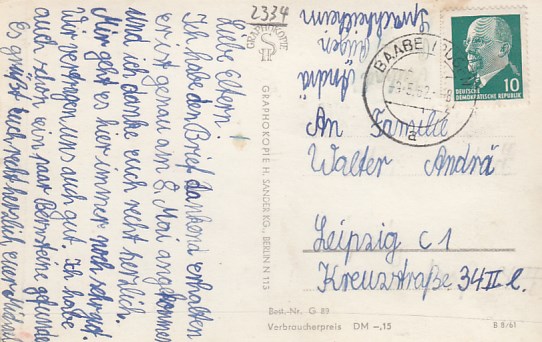 2334
Liebe Eltern!
Ich habe den Brief dankend erhalten
er ist genau am 8. Mai angekommen
und ich danke euch recht herzlich.
Mir geht es hier immer noch sehr gut.
Wir vertragen uns auch gut. Ich habe
auch schon ein paar Bernsteine gefunden
Es grüßt euch recht herzlich euer
GRAPHOKOPIE
GRAPHOKOPIE H. SANDER KG., BERLIN N 113
André
Sprachheilheim
BAABE
DEUTSCHE
DEMOKRATISCHE REPUBLIK
10
An Familie
Walter André
Leipzig C 1
Kreuzstraße 34 II l.
Best.-Nr. G 89
Verbraucherpreis DM -,15
B 8/61